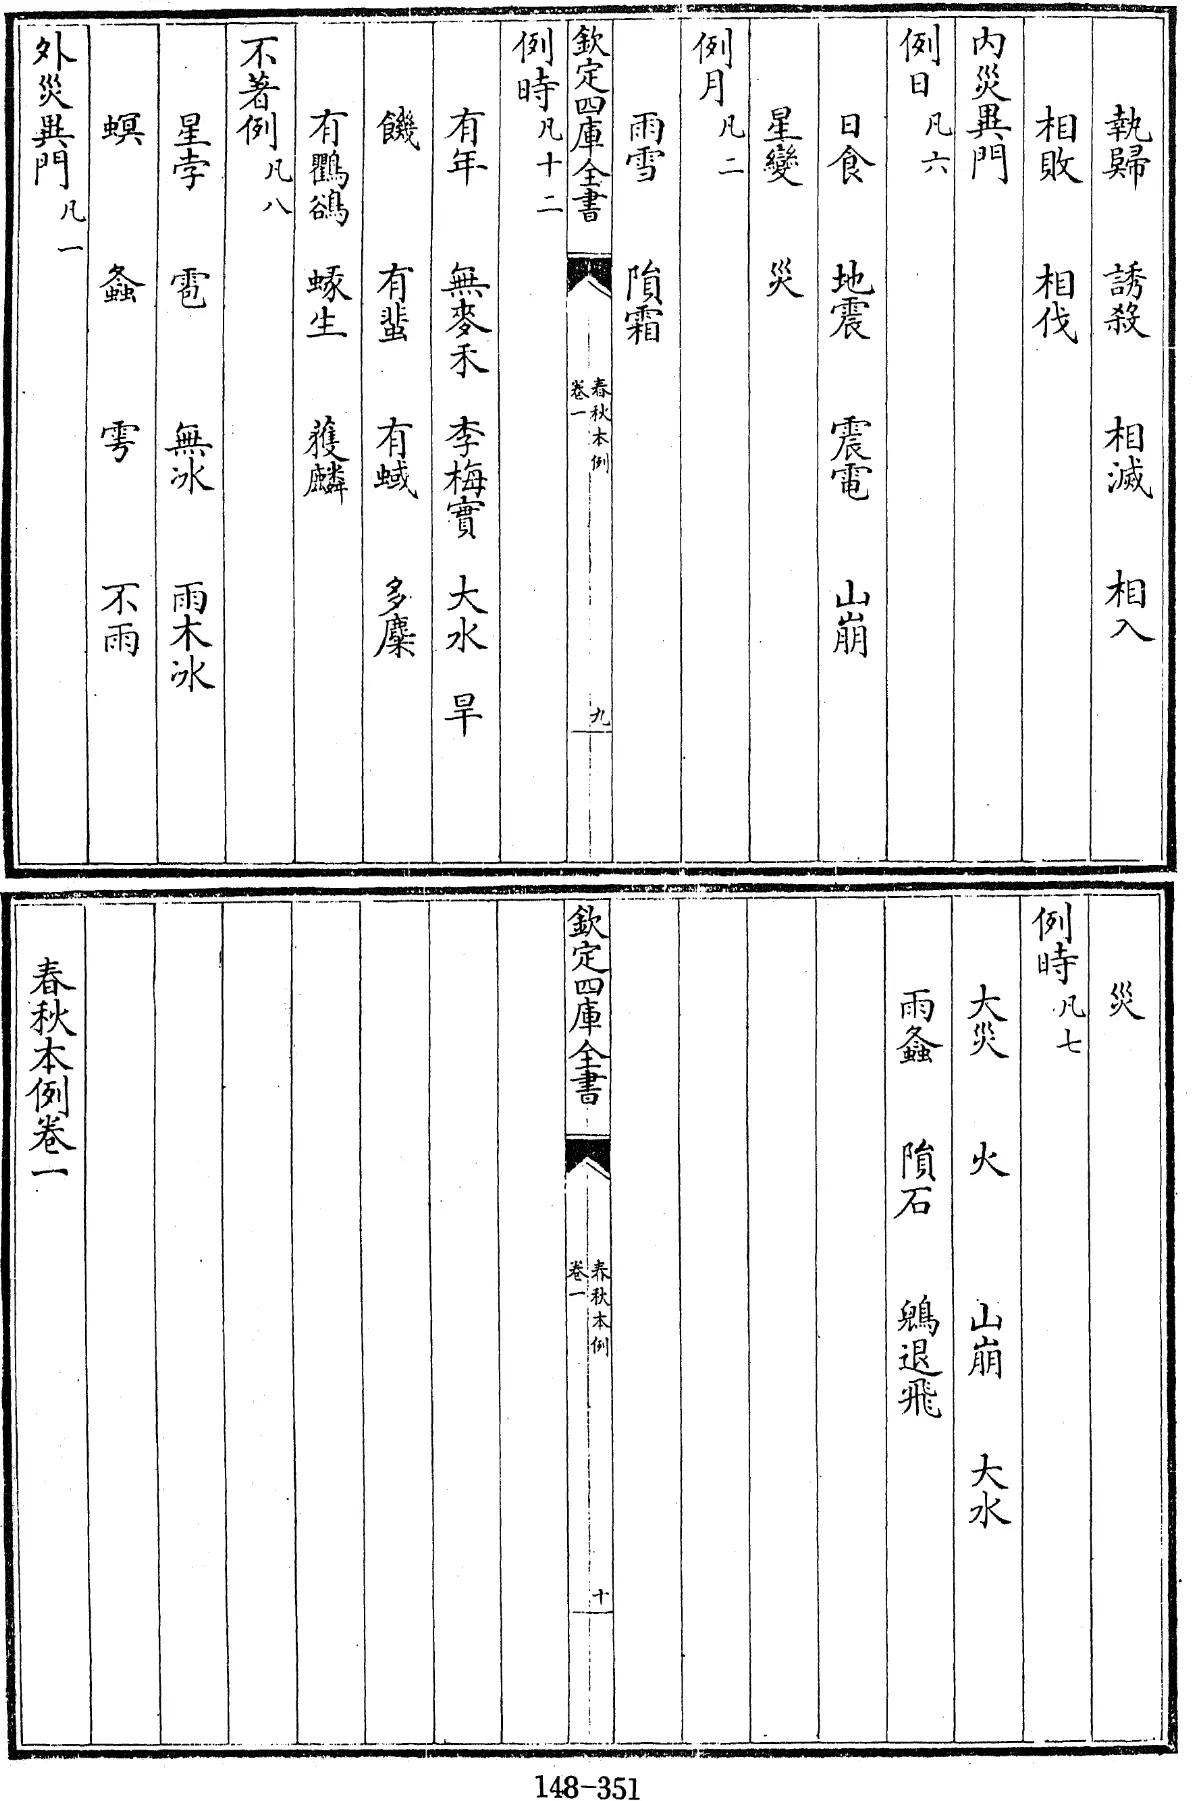 執歸　誘殺　相滅　相入
相敗　相伐
內災異門
例日凡六
日食　地震　震電　山崩
星變　災
例月凡二
雨雪　隕霜
欽定四庫全書
春秋本例
卷一
九
例時凡十二
有年　無麥禾　李梅實　大水　旱
饑　有蜚　有蜮　多麋
有鸜鵒　蝝生　獲麟
不著例凡八
星孛　雹　無冰　雨木冰
螟　螽　雩　不雨
外災異門凡一
災
例時凡七
大災　火　山崩　大水
雨螽　隕石　鶂退飛
欽定四庫全書
春秋本例
卷一
十
春秋本例卷一
148-351